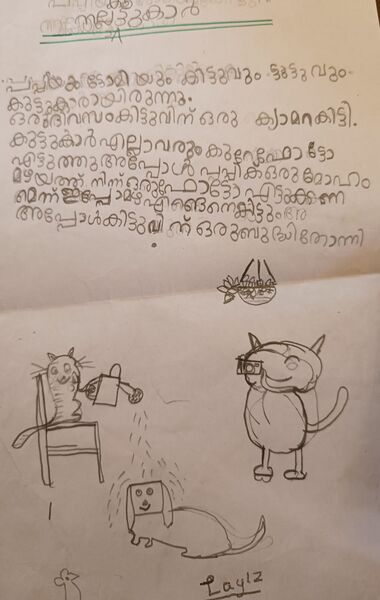 നല്ലട്ടുകാർ
പപ്പിയക ടോമിയും കിട്ടുവും ട്ടുട്ടുവും
കുട്ടുകാരായിരുന്നു.
ഒരുദിവസംകിട്ടുവിന് ഒരു ക്യാമറകിട്ടി.
കുട്ടുകാർ എല്ലാവരും കുറേഫോട്ടോ
എട്ടുത്തു അപ്പോൾ പപ്പിക്ക് ഒരു മോഹം
മഴയത്ത് നിന്ന് ഒരുഫോട്ടോ എട്ടുക്കണ
മെന്ന് ഇപ്പോമഴ എങ്ങനെകിട്ടും
അപ്പോൾകിട്ടുവിന് ഒരുബുദ്ധിതോന്നി
Layiz